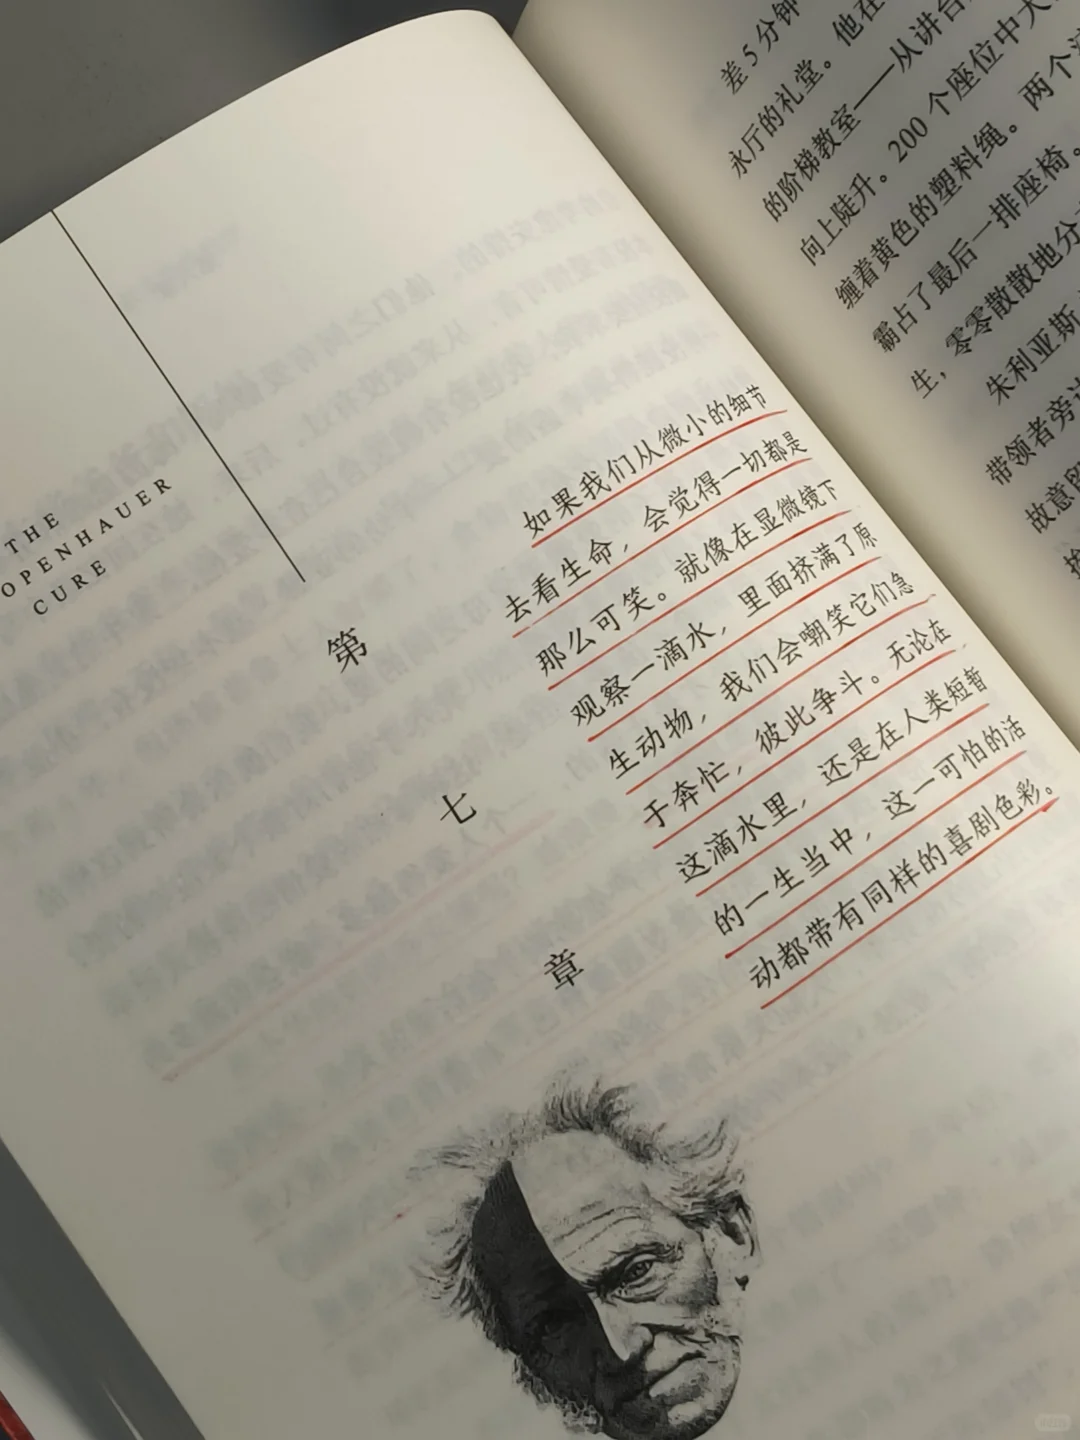 THE
OPENHAUER
CURE
第
七
章
如果我们从微小的细节
去看生命，会觉得一切都是
那么可笑。就像在显微镜下
观察一滴水，里面挤满了原
生动物，我们会嘲笑它们急
于奔忙，彼此争斗。无论在
这滴水里，还是在人类短暂
的一生当中，这一可怕的活
动都带有同样的喜剧色彩。
差5分钟
永厅的礼堂。他在
的阶梯教室——从讲台
向上陡升。200个座位中大
缠着黄色的塑料绳。两个
霸占了最后一排座椅。
生，零零散散地分
朱利亚斯
带领者旁
故意留